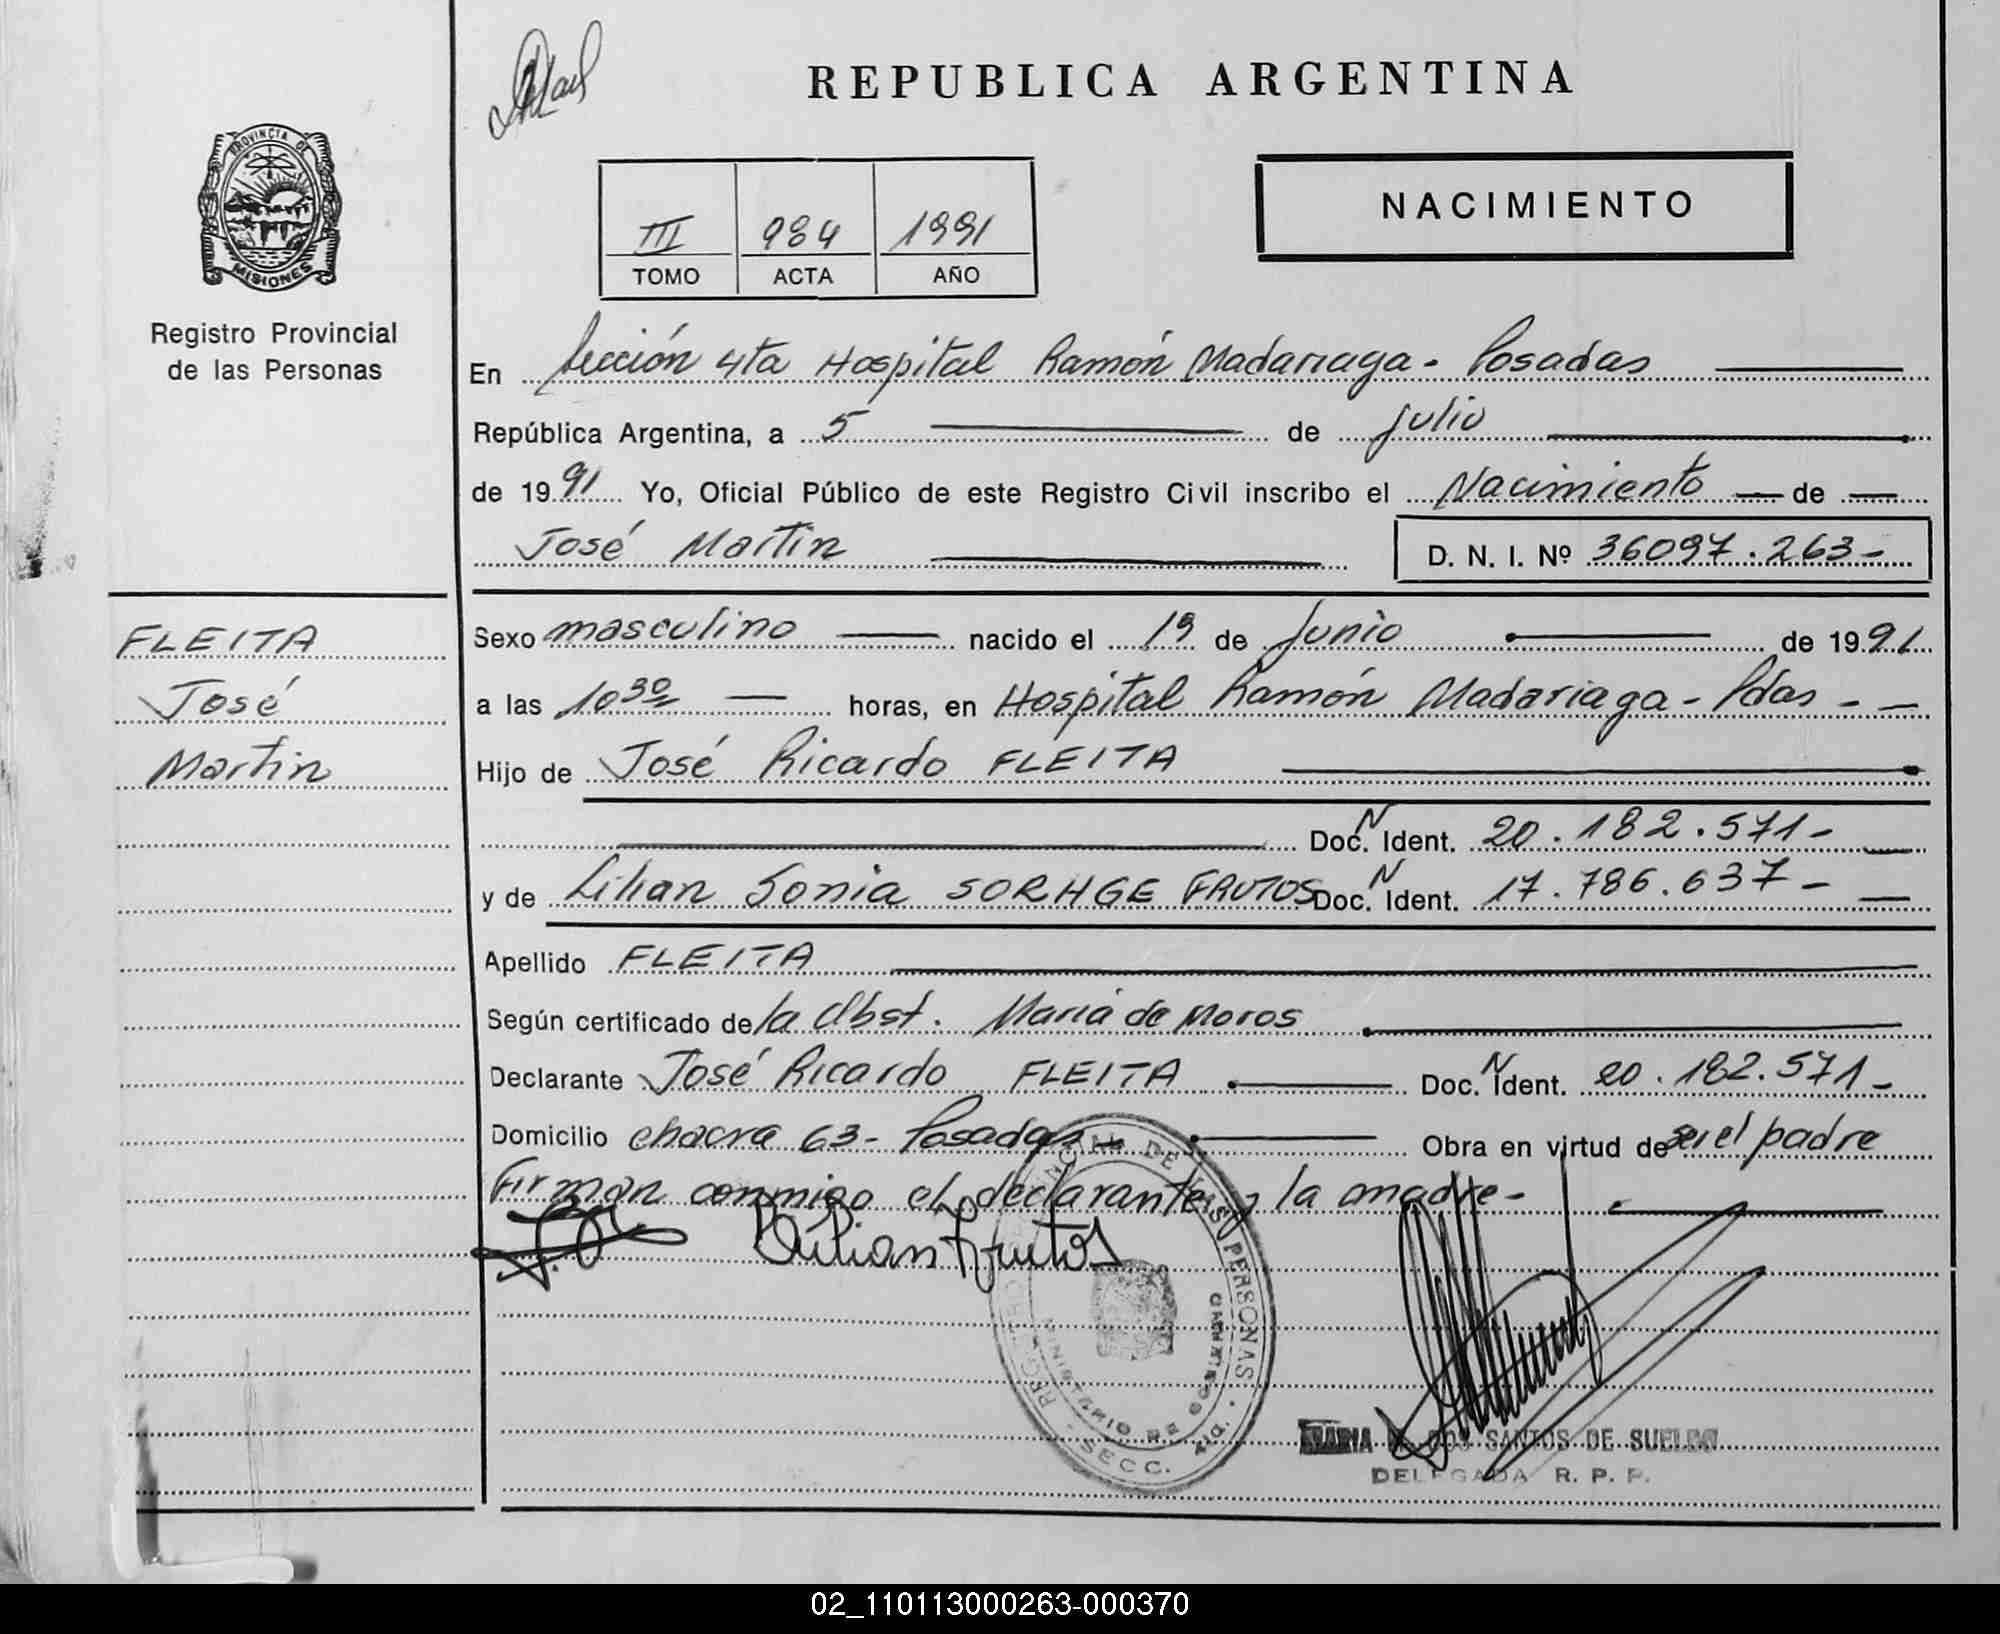 REPUBLICA ARGENTINA
PROVINCIA DE
MISIONES
Registro Provincial
de las Personas
III 984 1991
TOMO ACTA AÑO
NACIMIENTO
En Sección 4ta Hospital Ramón Madariaga - Posadas
República Argentina, a 5 de julio
de 1991 Yo, Oficial Público de este Registro Civil inscribo el Nacimiento de
José Martin D. N. I. Nº 36097.263-
FLEITA
José
Martin
Sexo masculino nacido el 19 de Junio de 1991
a las 10 30 horas, en Hospital Ramón Madariaga - Pdas -
Hijo de José Ricardo FLEITA
Doc. N Ident. 20.182.571-
y de Lilian Sonia FRUTOS Doc. N Ident. 17.786.637-
Apellido FLEITA
Según certificado de la Obst. Maria de Moros
Declarante José Ricardo FLEITA Doc. N Ident. 20.182.571-
Domicilio chacra 63 - Posadas - Obra en virtud de ser el padre
Firman conmigo el declarante y la madre -
Lilian Frutos
REGISTRO PROVINCIAL DE LAS PERSONAS
SECC.
MARIA DOS SANTOS DE SUELDO
DELEGADA R. P. P.
02_110113000263-000370